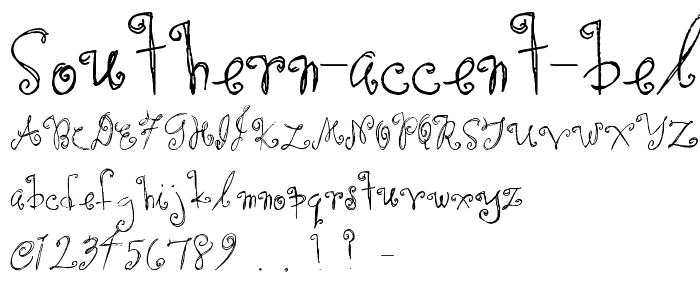 Southern-accent-bel
ABCDEFGHIJKLMNOPQRSTUVWXYZ
abcdefghijklmnopqrstuvwxyz
@123456789 . . ! ? -